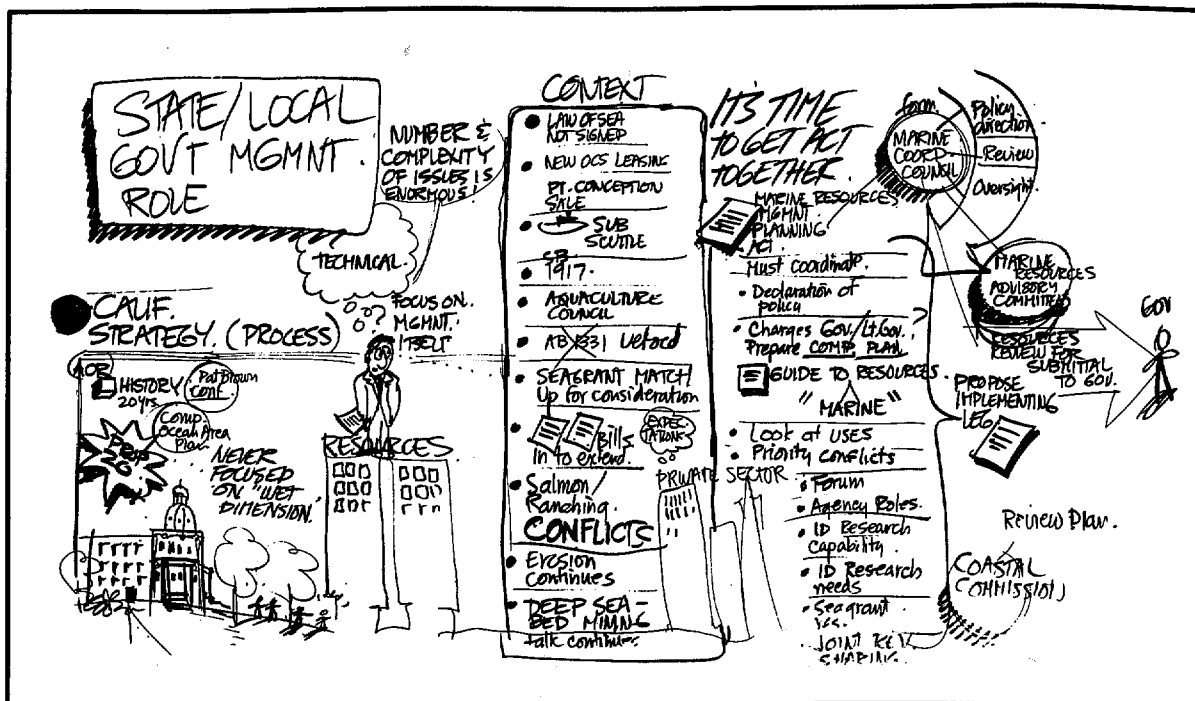 STATE/LOCAL
GOVT MGMNT.
ROLE
NUMBER &
COMPLEXITY
OF ISSUES IS
ENORMOUS!
TECHNICAL.
???
FOCUS ON
MGMNT.
ITSELF
CALIF.
STRATEGY. (PROCESS)
ACR
HISTORY
20 yrs.
Pat Brown
Conf.
Comp.
Ocean Area
Plan
PROP
20
NEVER
FOCUSED
ON "WET
DIMENSION.
RESOURCES
CONTEXT
LAW OF SEA
NOT SIGNED
NEW OCS LEASING
PT. CONCEPTION
SALE
SUB
SCUTTLE
SB
1917.
AQUACULTURE
COUNCIL
AB 1331 Vetoed
SEAGRANT MATCH/
Up for consideration
Bills
In to extend.
Salmon/
Ranching.
CONFLICTS
EROSION
Continues
DEEP SEA-
BED MINING
talk continues
EXPEC-
TATIONS
PRIVATE SECTOR
IT'S TIME
TO GET ACT
TOGETHER.
MARINE RESOURCES
MGMNT.
PLANNING
ACT
Must coordinate.
Declaration of
policy
Charges Gov./Lt. Gov.?
Prepare COMP. PLAN
GUIDE TO RESOURCES.
"MARINE"
Look at USES
Priority conflicts
Forum
Agency Roles.
ID Research
Capability.
ID Research
needs
Seagrant
JOINT REV.
SHARING.
form
MARINE
COORD
COUNCIL
Policy
direction
Review
Oversight.
MARINE
RESOURCES
ADVISORY
COMMITTEE
RESOURCES
REVIEW FOR
SUBMITTAL
TO GOV.
GOV
PROPOSE
IMPLEMENTING
LEG
Review Plan.
COASTAL
COMMISSION